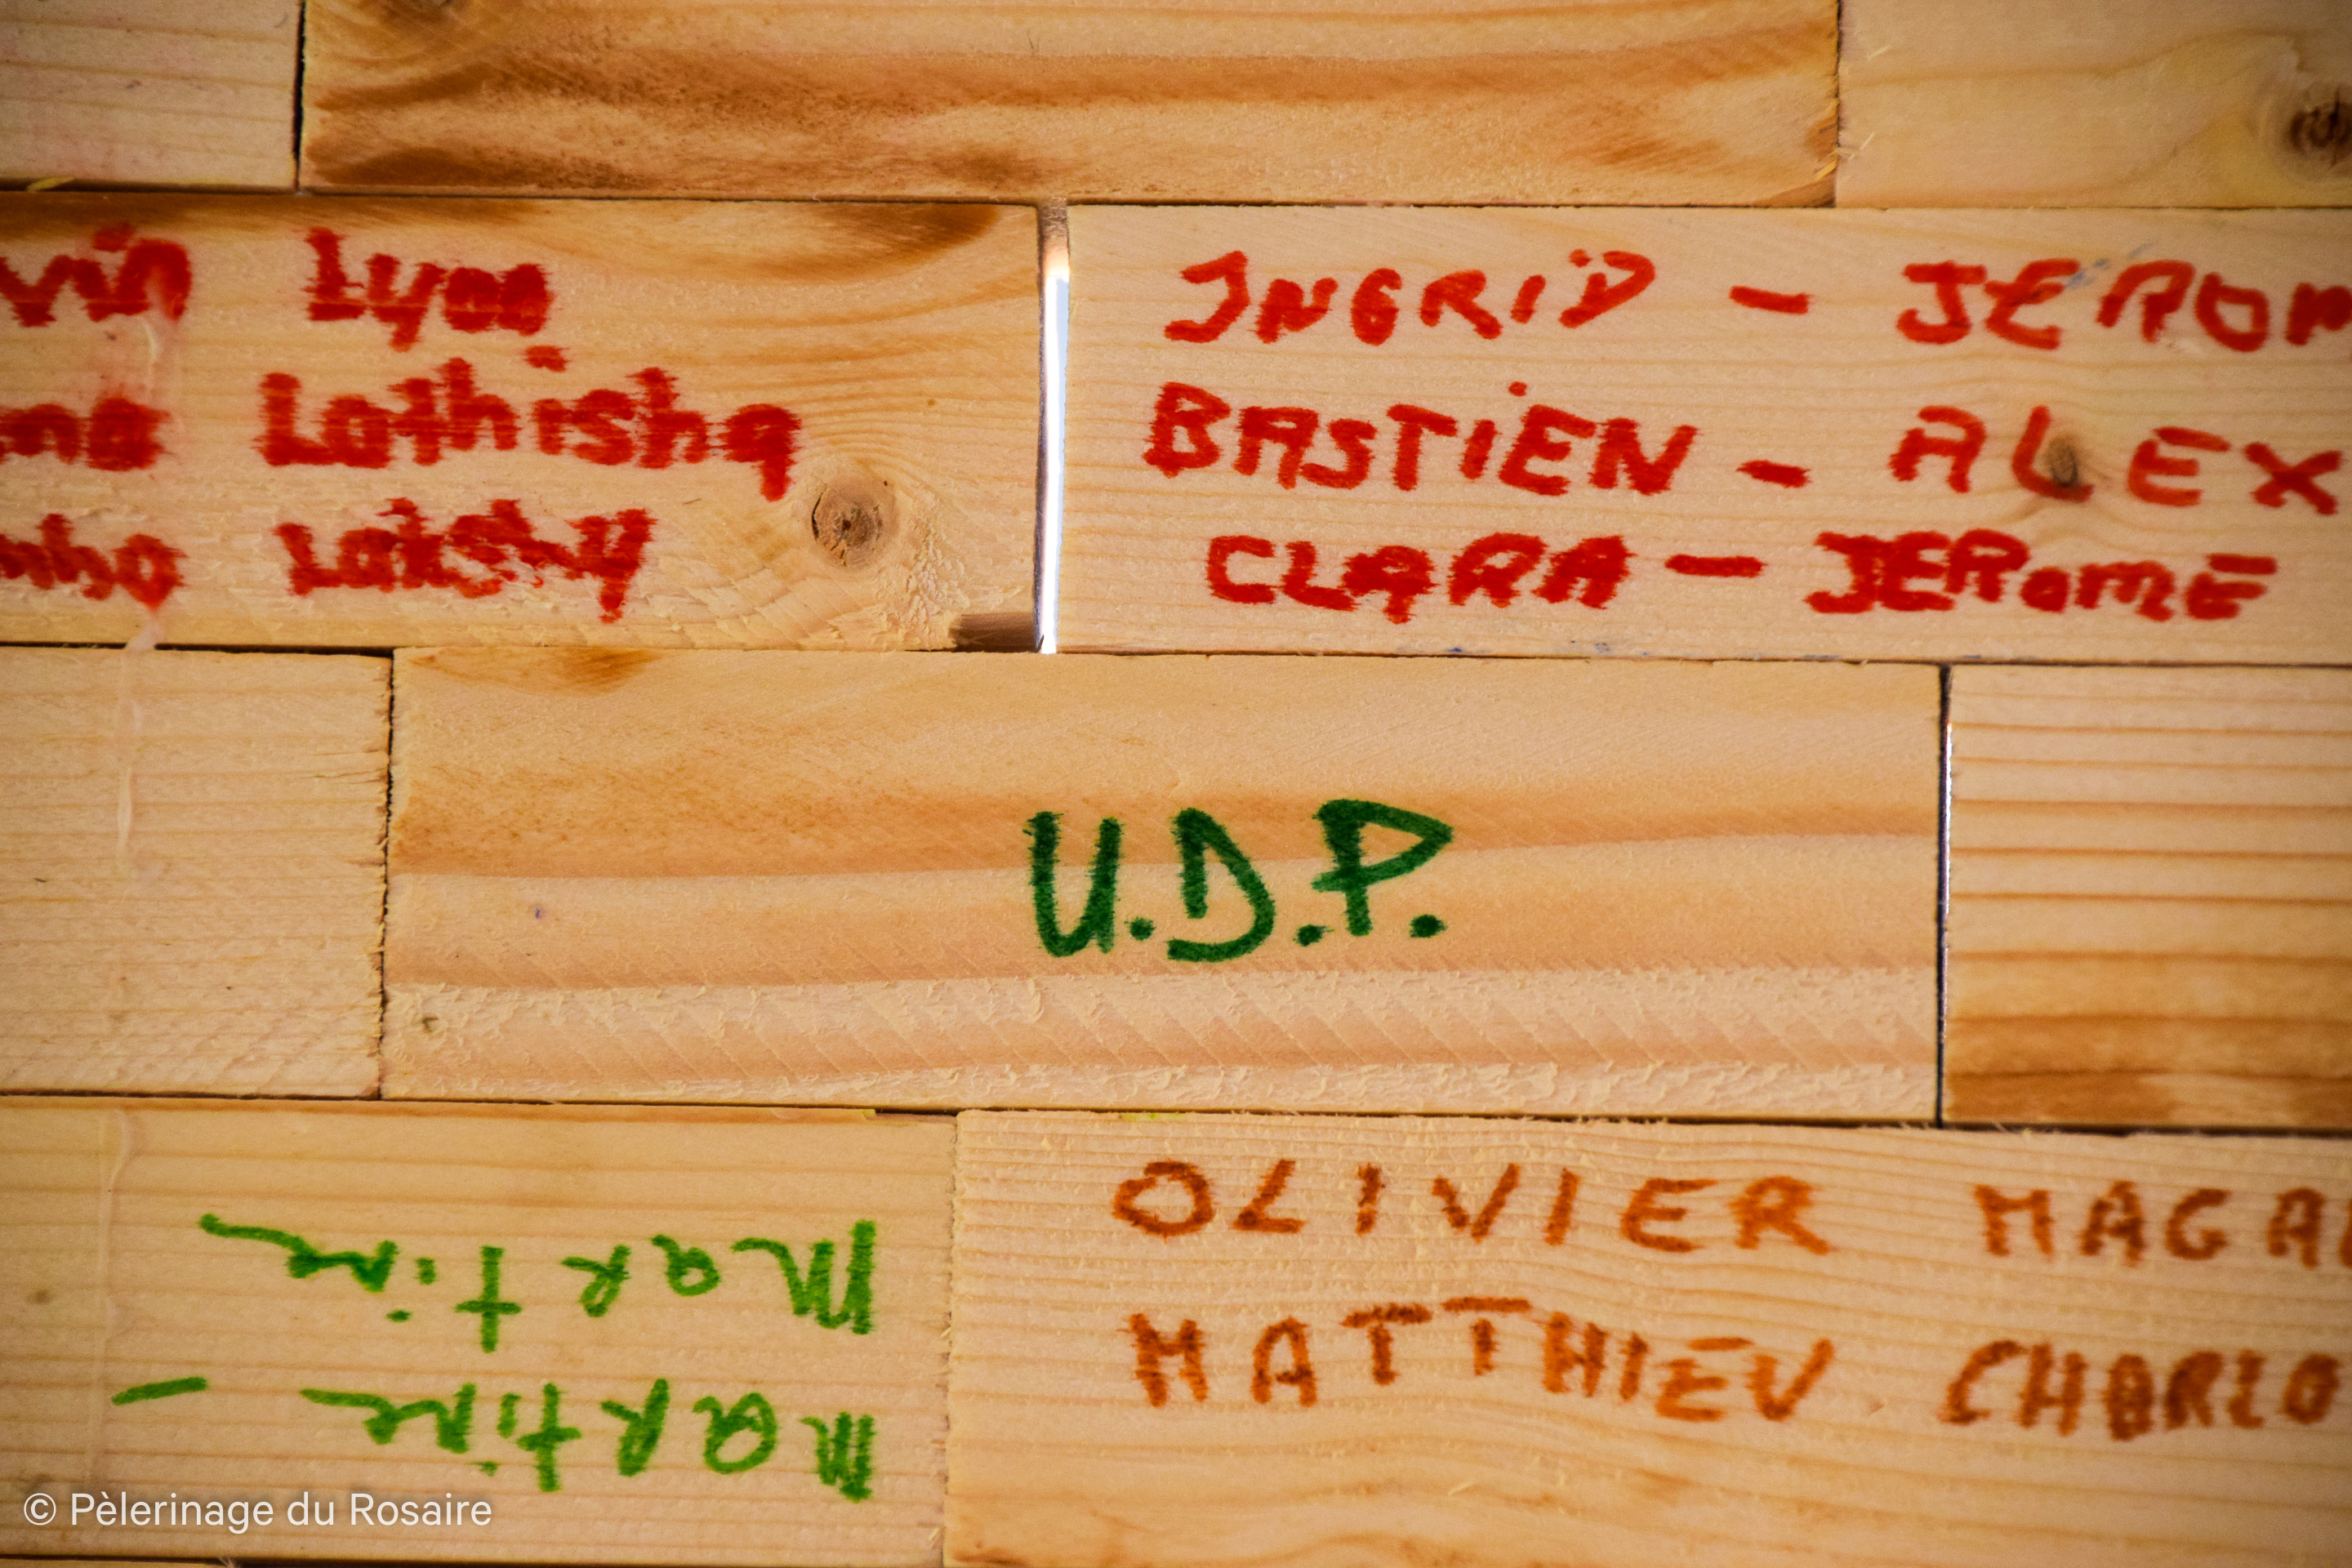 Lyna
Lathisha
Lakshy
INGRID - JEROM
BASTIEN - ALEX
CLARA - JEROME
U.D.P.
Martine
Martine -
OLIVIER MAGAL
MATTHIEU CHARLO
© Pèlerinage du Rosaire